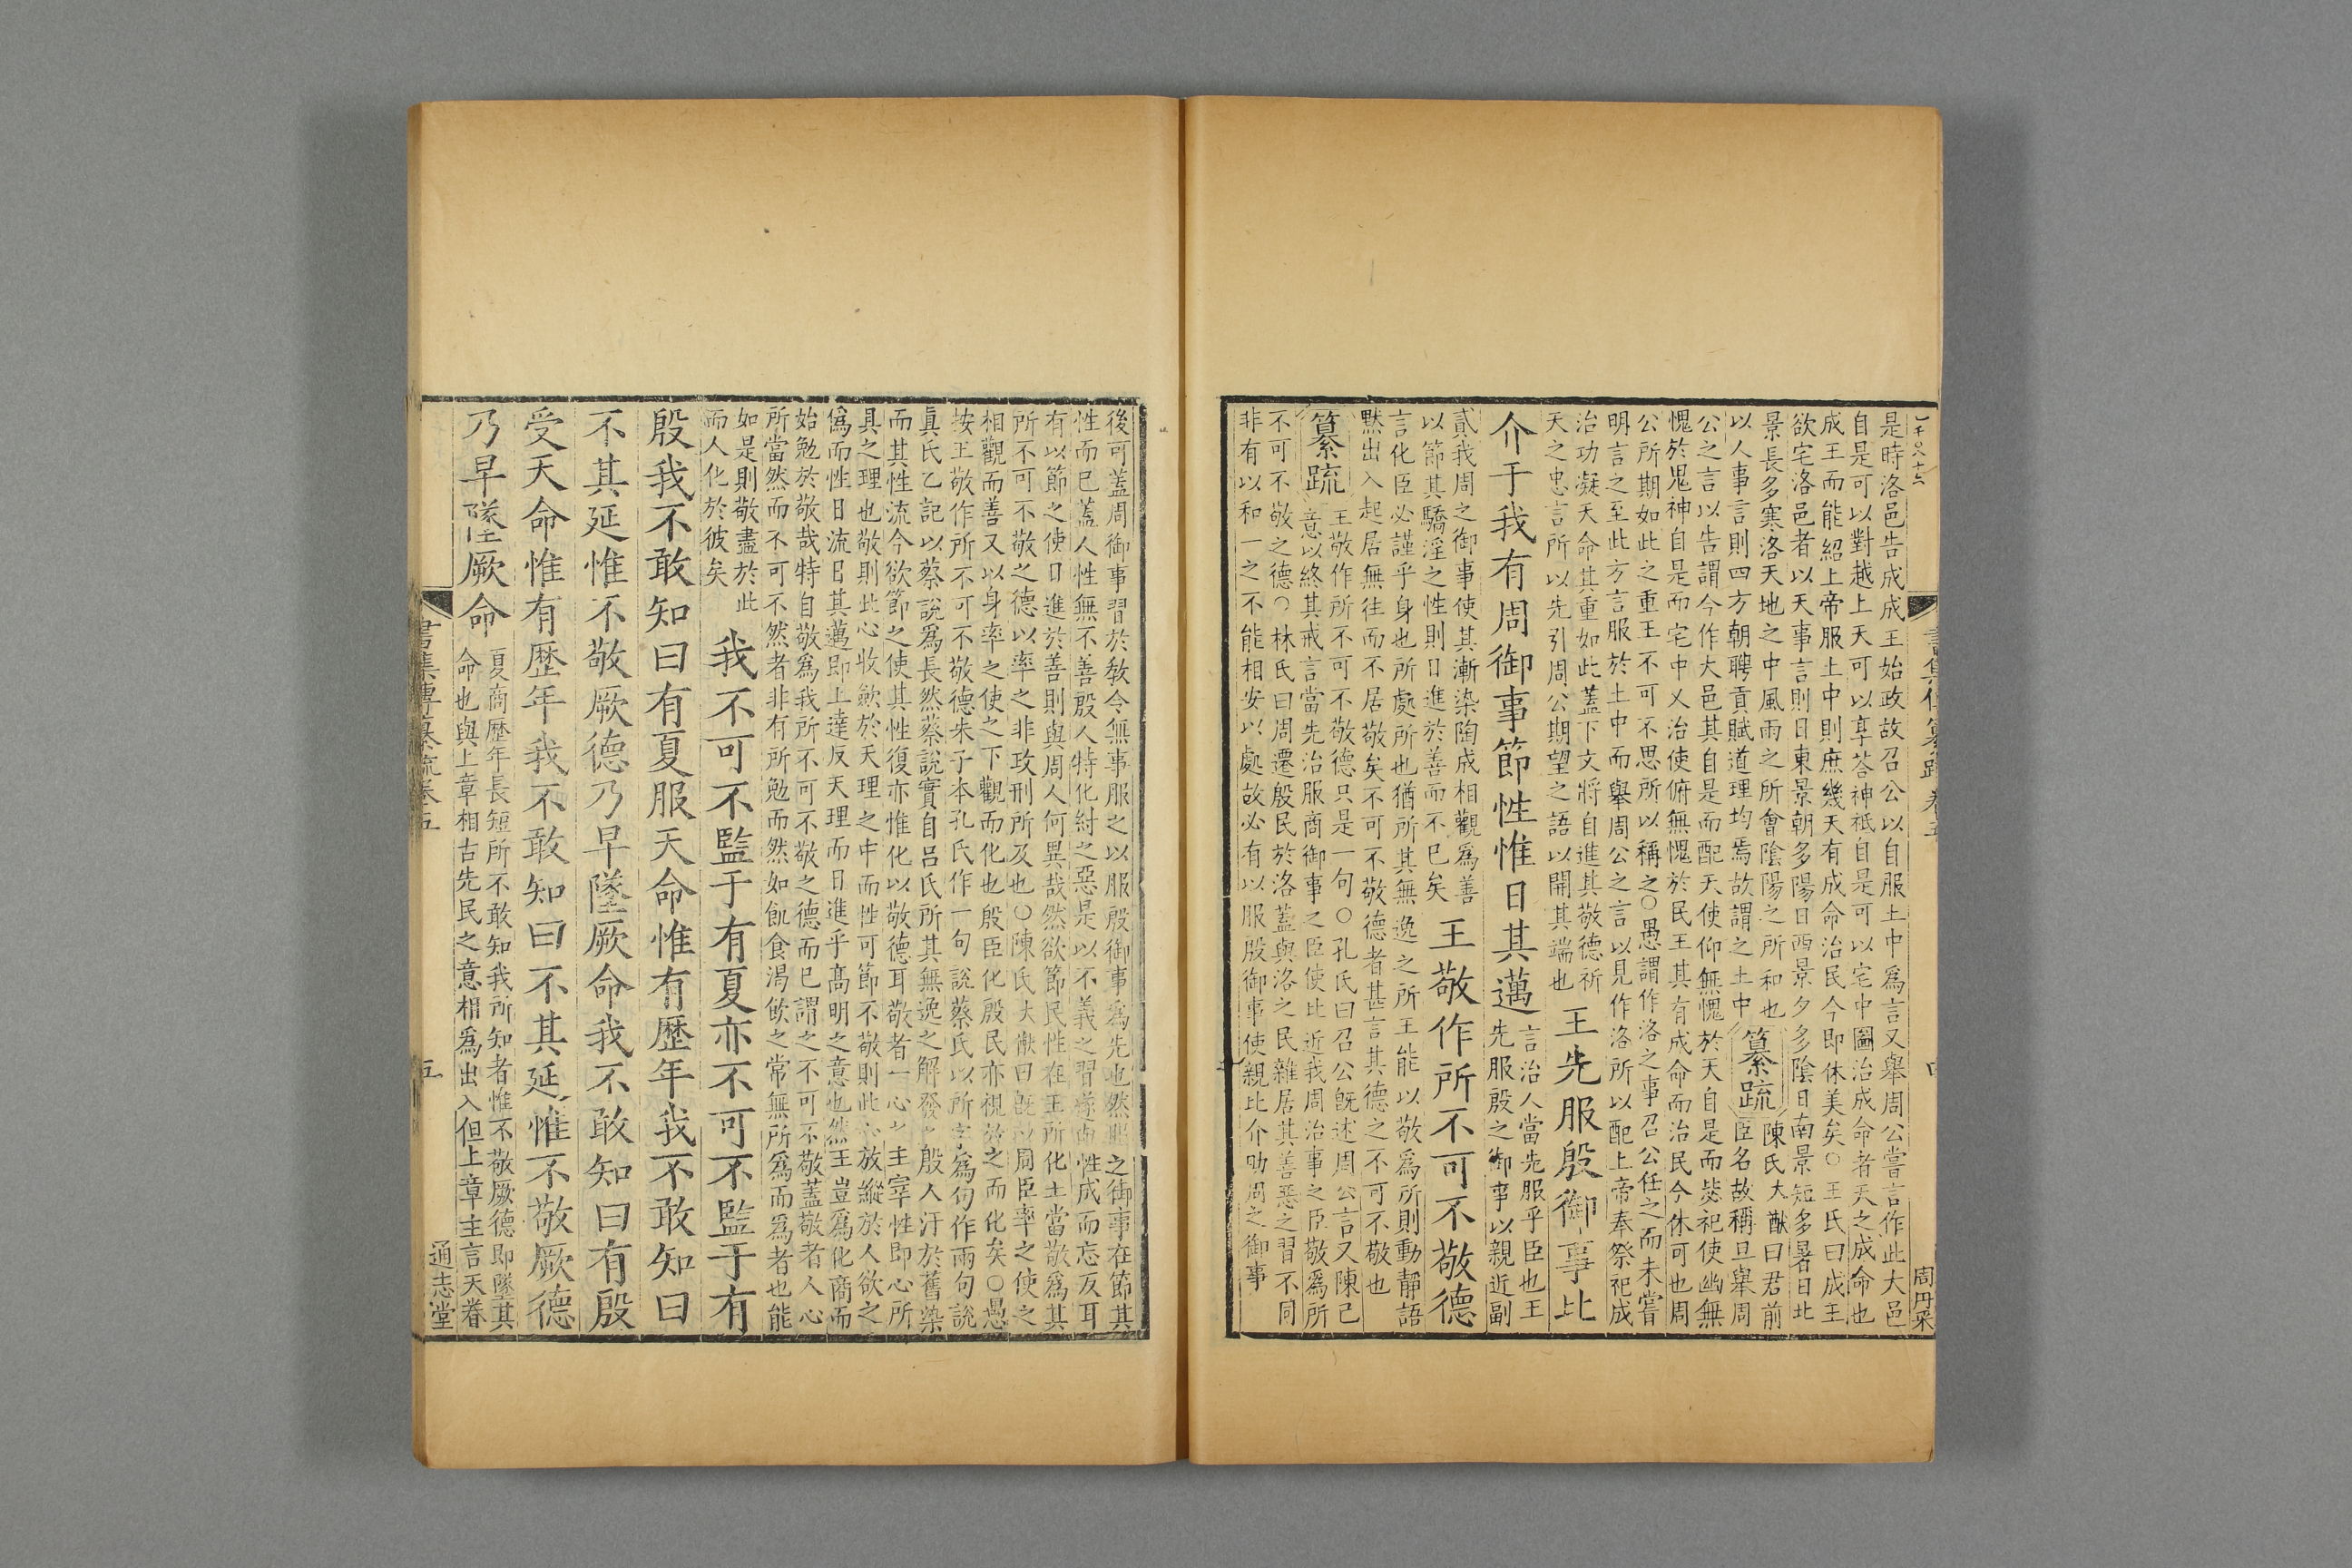 是時洛邑告成成王始政故召公以自服土中爲言又舉周公嘗言作此大邑
自是可以對越上天可以享荅神祇自是可以宅中圖治成命者天之成命也
成王而能紹上帝服土中則庶幾天有成命治民今即休美矣○王氏曰成王
欲宅洛邑者以天事言則日東景朝多陽日西景夕多陰日南景短多暑日北
景長多寒洛天地之中風雨之所會陰陽之所和也
以人事言則四方朝聘貢賦道理均焉故謂之土中
纂疏
陳氏大猷曰君前
臣名故稱旦舉周
公之言以告謂今作大邑其自是而配天使仰無愧於天自是而毖祀使幽無
愧於鬼神自是而宅中乂治使俯無愧於民王其有成命而治民今休可也周
公所期如此之重王不可不思所以稱之○愚謂作洛之事召公任之而未嘗
明言之至此方言服於土中而舉周公之言以見作洛所以配上帝奉祭祀成
治功凝天命其重如此蓋下文將自進其敬德祈
天之忠言所以先引周公期望之語以開其端也
王先服殷御事比
介于我有周御事節性惟日其邁
言治人當先服乎臣也王
先服殷之御事以親近副
貳我周之御事使其漸染陶成相觀爲善
以節其驕淫之性則日進於善而不已矣
王敬作所不可不敬德
言化臣必謹乎身也所處所也猶所其無逸之所王能以敬爲所則動靜語
黙出入起居無往而不居敬矣不可不敬德者甚言其德之不可不敬也
纂疏
王敬作所不可不敬德只是一句○孔氏曰召公旣述周公言又陳己
意以終其戒言當先治服商御事之臣使比近我周治事之臣敬爲所
不可不敬之德○林氏曰周遷殷民於洛蓋與洛之民雜居其善惡之習不同
非有以和一之不能相安以處故必有以服殷御事使親比介助周之御事
後可蓋周御事習於敎令無事服之以服殷御事爲先也然服之御事在節其
性而已蓋人性無不善殷人特化紂之惡是以不義之習性成而忘反耳
有以節之使日進於善則與周人何異哉然欲節民性在王所化土當敬爲其
所不可不敬之德以率之非政刑所及也○陳氏大猷曰旣周臣率之使之
相觀而善又以身率之使之下觀而化也殷臣化殷民亦視之而化矣○愚
按王敬作所不可不敬德朱子本孔氏作一句說蔡氏以所字爲句作兩句說
眞氏乙記以蔡說爲長然蔡說實自呂氏所其無逸之解發之殷人汙於舊染
而其性流今欲節之使其性復亦惟化以敬德耳敬者一心之主宰性即心所
具之理也敬則此心收斂於天理之中而性可節不敬則此心放縱於人欲之
僞而性日流日其邁即上達反天理而日進乎高明之意也然王豈爲化商而
始勉於敬哉特自敬爲我所不可不敬之德而已謂之不可不敬蓋敬者人心
所當然而不可不然者非有所勉而然如飢食渴飲之常無所爲而爲者也能
如是則敬盡於此
而人化於彼矣
我不可不監于有夏亦不可不監于有
殷我不敢知曰有夏服天命惟有歷年我不敢知曰
不其延惟不敬厥德乃早墜厥命我不敢知曰有殷
受天命惟有歷年我不敢知曰不其延惟不敬厥德
乃早墜厥命
夏商歷年長短所不敢知我所知者惟不敬厥德即墜其
命也與上章相古先民之意相爲出入但上章主言天眷
書集傳纂疏卷五
五
通志堂